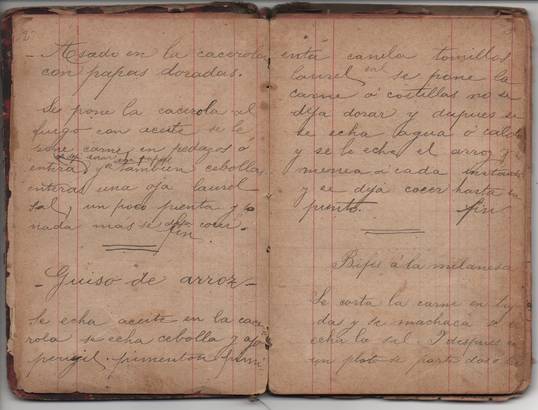 - Asado en la cacerola
con papas doradas.
Se pone la cacerola al
fuego con aceite se le
pone carne en pedazos ó
entera, y tambien cebollas
enteras una oja laurel
sal, y un poco pimenta y
nada mas se deja cocer.
fin
- Guiso de arroz -
Se echa aceite en la cace
rola se echa cebolla y ajo
perejil. pimenton
enta canela tomillos
laurel sal se pone la
carne ó costillas no se
deja dorar y despues se
le echa agua ó caldo
y se le echa el arroz y
menea á cada instante
y se deja cocer hasta
punto. fin
Bifes á la milanesa
Se corta la carne en
das y se machaca
echa la sal. I despues
un plato se parte dos ó